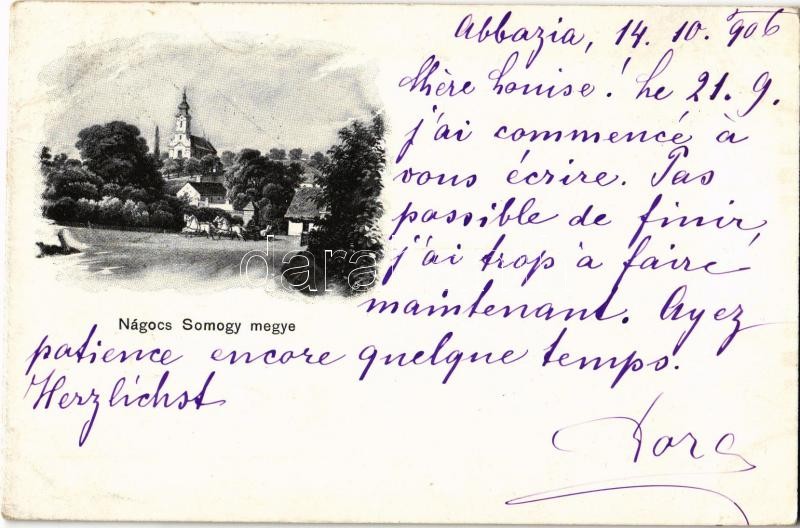 Abbazia, 14. 10. 906
Chère Louise! Le 21. 9.
j'ai commencé à
vous écrire. Pas
possible de finir,
j'ai trop à faire
maintenant. Ayez
Nágocs Somogy megye
patience encore quelque temps.
Herzlichst
Dora
darabanth